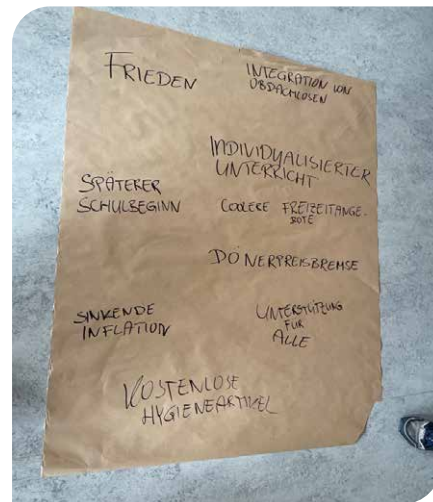 FRIEDEN
INTEGRATION VON
OBDACHLOSEN
INDIVIDUALISIERTER
UNTERRICHT
SPÄTERER
SCHULBEGINN
COOLERE FREIZEITANGE-
BOTE
DÖNERPREISBREMSE
SINKENDE
INFLATION
UNTERSTÜTZUNG
FÜR
ALLE
KOSTENLOSE
HYGIENEARTIKEL